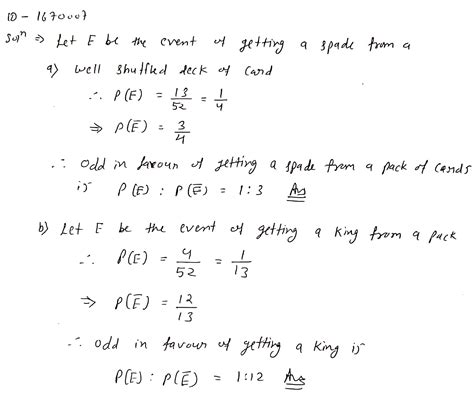 ID - 1670007
Solⁿ ⇒ Let E be the event of getting a spade from a
a) well shuffled deck of card
∴ P(E) = 13/52 = 1/4
⇒ P(Ē) = 3/4
∴ odd in favour of getting a spade from a pack of cards
is P(E) : P(Ē) = 1:3 Ans
b) Let E be the event of getting a King from a pack
∴ P(E) = 4/52 = 1/13
⇒ P(Ē) = 12/13
∴ odd in favour of getting a King is
P(E) : P(Ē) = 1:12 Ans